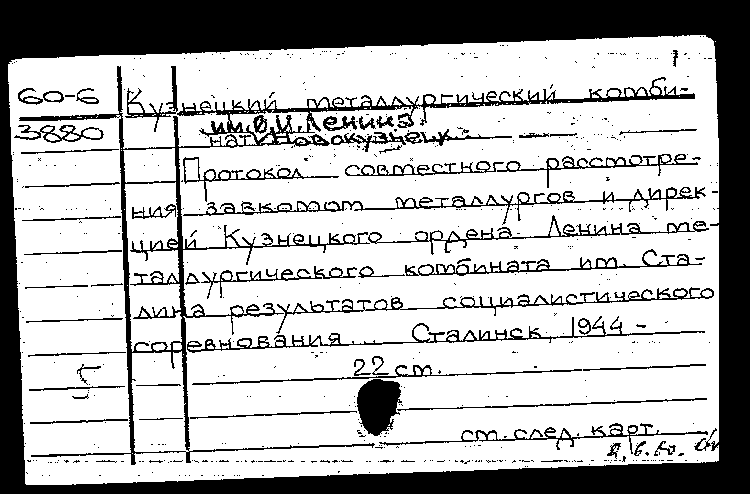 1
60-6 Кузнецкий металлургический комби-
им. В.И. Ленина.
3880 нат Новокузнецк.
Протокол совместного рассмотре-
ния завкомом металлургов и дирек-
цией Кузнецкого ордена Ленина ме-
таллургического комбината им. Ста-
лина результатов социалистического
соревнования... Сталинск, 1944 -
5 22 см.
см. след. карт.